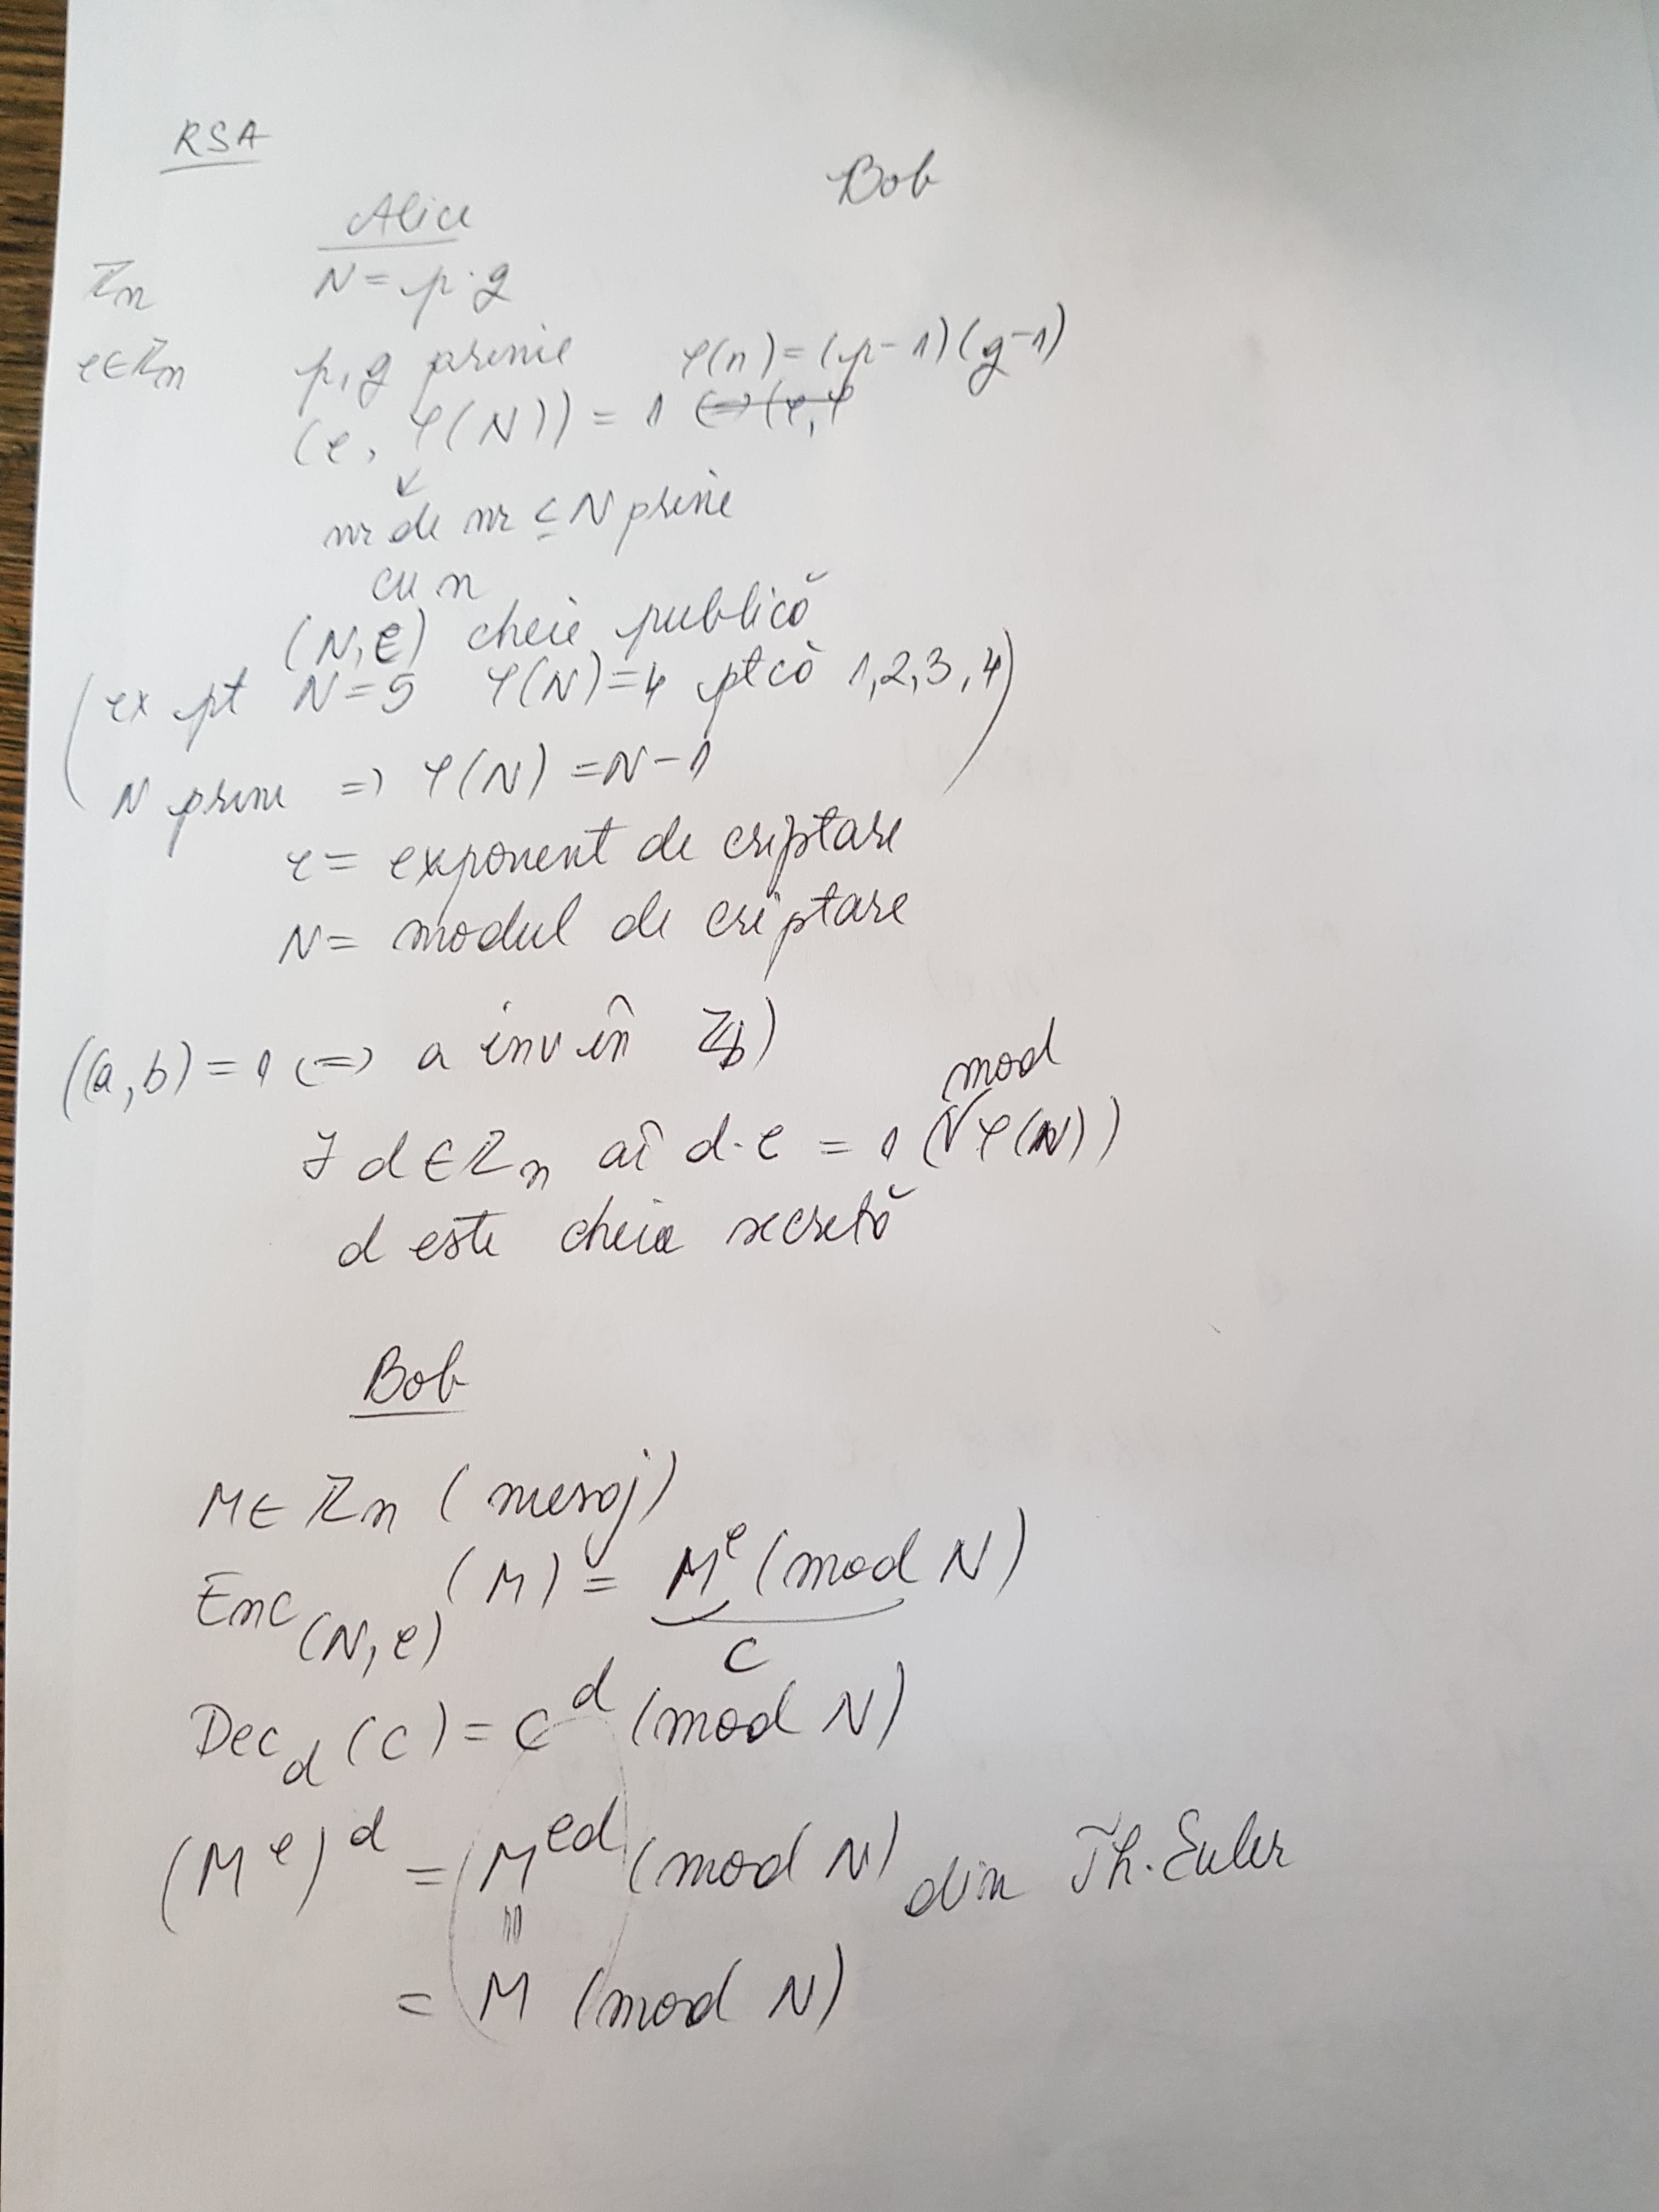 RSA
Bob
Alice
ℤn N = p·q
e∈ℤn p,q prime φ(n) = (p-1)(q-1)
(e, φ(N)) = 1 (=> (e, φ
↓
nr de nr ≤ N prime
cu n
(N,e) cheie publică
(ex pt N=5 φ(N)=4 ptcă 1,2,3,4)
N prim => φ(N) = N-1
e = exponent de criptare
N = modul de criptare
((a,b) = 1 <=> a inv în ℤb)
mod
∃ d∈ℤn aî d·e = 1 (φ(N))
d este cheia secretă
Bob
M∈ℤn (mesaj)
Enc(N,e) (M) = M^e (mod N)
C
Dec_d (C) = C^d (mod N)
(M^e)^d = M^ed (mod N) din Th. Euler
=
= M (mod N)